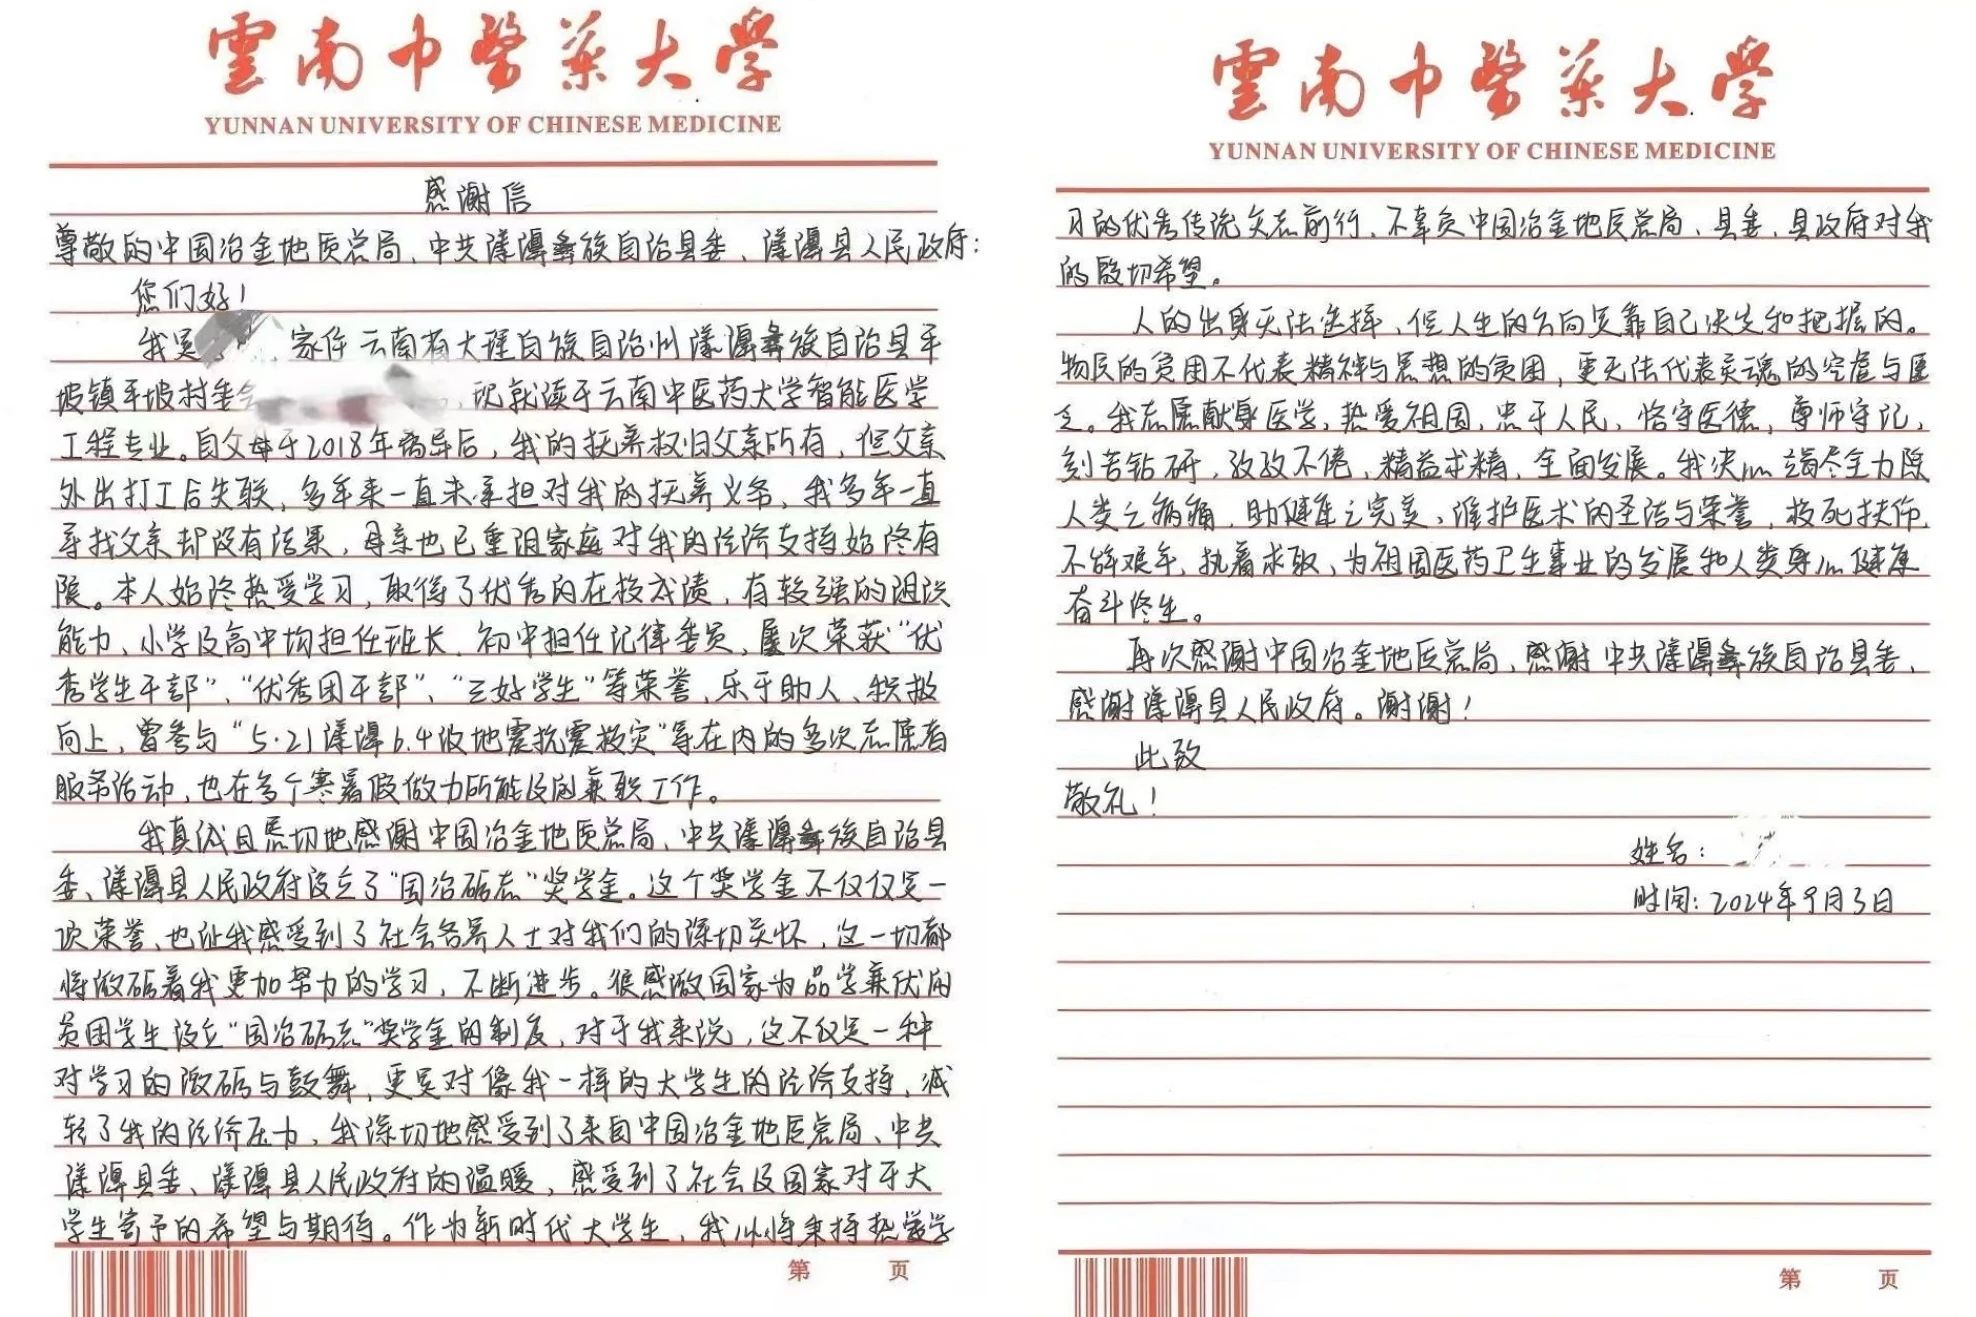 雲南中醫藥大学
YUNNAN UNIVERSITY OF CHINESE MEDICINE
感谢信
尊敬的中国冶金地质总局、中共漾濞彝族自治县委、漾濞县人民政府：
您们好！
我是 家住云南省大理白族自治州漾濞彝族自治县平
坡镇平坡村委会 ，现就读于云南中医药大学智能医学
工程专业。自父母于2018年离异后，我的抚养权归父亲所有，但父亲
外出打工后失联，多年来一直未承担对我的抚养义务，我多年一直
寻找父亲却没有结果，母亲也已重组家庭对我的经济支持始终有
限。本人始终热爱学习，取得了优秀的在校成绩，有较强的组织
能力、小学及高中均担任班长、初中担任纪律委员，屡次荣获“优
秀学生干部”、“优秀团干部”、“三好学生”等荣誉，乐于助人、积极
向上，曾参与“5·21漾濞6.4级地震抗震救灾”等在内的多次志愿者
服务活动，也在多个寒暑假做力所能及的兼职工作。
我真诚且恳切地感谢中国冶金地质总局、中共漾濞彝族自治县
委、漾濞县人民政府设立了“国冶砺志”奖学金。这个奖学金不仅仅是一
项荣誉、也让我感受到了社会各界人士对我们的深切关怀，这一切都
将激砺着我更加努力的学习，不断进步。很感激国家为品学兼优的
贫困学生设立“国冶砺志”奖学金的制度，对于我来说，这不仅是一种
对学习的激砺与鼓舞，更是对像我一样的大学生的经济支持，减
轻了我的经济压力，我深切地感受到了来自中国冶金地质总局、中共
漾濞县委、漾濞县人民政府的温暖，感受到了社会及国家对于大
学生寄予的希望与期待。作为新时代大学生，我必将秉持热爱学
第 页
雲南中醫藥大学
YUNNAN UNIVERSITY OF CHINESE MEDICINE
习的优秀传统矢志前行，不辜负中国冶金地质总局、县委、县政府对我
的殷切希望。
人的出身无法选择，但人生的方向是靠自己决定和把握的。
物质的贫困不代表精神与思想的贫困，更无法代表灵魂的空虚与匮
乏。我志愿献身医学，热爱祖国，忠于人民，恪守医德，尊师守纪，
刻苦钻研，孜孜不倦，精益求精，全面发展。我决心竭尽全力除
人类之病痛，助健康之完美，维护医术的圣洁与荣誉，救死扶伤，
不辞艰辛，执着求取，为祖国医药卫生事业的发展和人类身心健康
奋斗终生。
再次感谢中国冶金地质总局，感谢中共漾濞彝族自治县委，
感谢漾濞县人民政府。谢谢！
此致
敬礼！
姓名：
时间：2024年9月3日
第 页